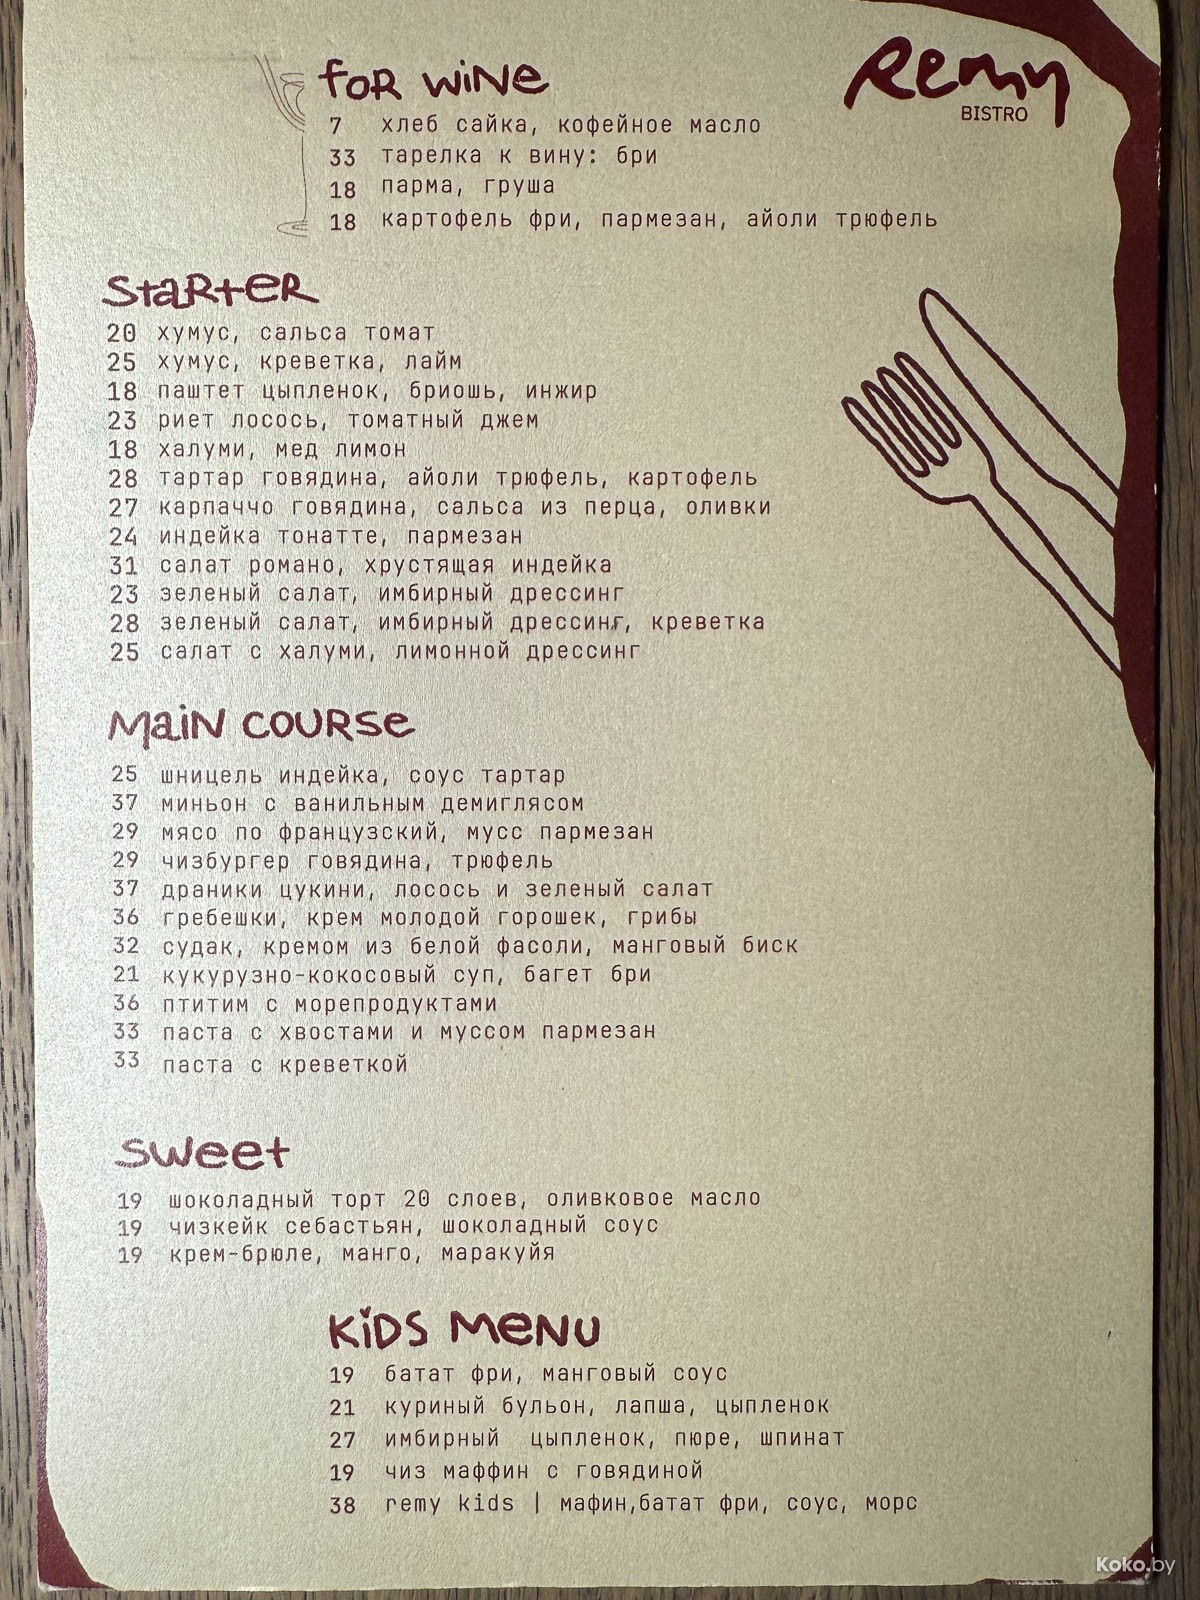 for wine
Remy
BISTRO
7 хлеб сайка, кофейное масло
33 тарелка к вину: бри
18 парма, груша
18 картофель фри, пармезан, айоли трюфель
starter
20 хумус, сальса томат
25 хумус, креветка, лайм
18 паштет цыпленок, бриошь, инжир
23 риет лосось, томатный джем
18 халуми, мед лимон
28 тартар говядина, айоли трюфель, картофель
27 карпаччо говядина, сальса из перца, оливки
24 индейка тонатте, пармезан
31 салат романо, хрустящая индейка
23 зеленый салат, имбирный дрессинг
28 зеленый салат, имбирный дрессинг, креветка
25 салат с халуми, лимонной дрессинг
Main course
25 шницель индейка, соус тартар
37 миньон с ванильным демиглясом
29 мясо по французский, мусс пармезан
29 чизбургер говядина, трюфель
37 драники цукини, лосось и зеленый салат
36 гребешки, крем молодой горошек, грибы
32 судак, кремом из белой фасоли, манговый биск
21 кукурузно-кокосовый суп, багет бри
36 птитим с морепродуктами
33 паста с хвостами и муссом пармезан
33 паста с креветкой
sweet
19 шоколадный торт 20 слоев, оливковое масло
19 чизкейк себастьян, шоколадный соус
19 крем-брюле, манго, маракуйя
Kids Menu
19 батат фри, манговый соус
21 куриный бульон, лапша, цыпленок
27 имбирный цыпленок, пюре, шпинат
19 чиз маффин с говядиной
38 remy kids | мафин,батат фри, соус, морс
Koko.by